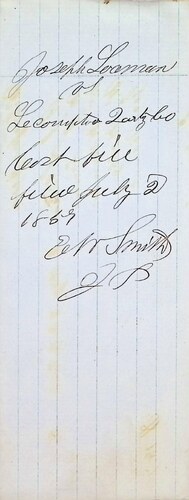 Joseph Loaman
vs
Lecompton Quartz Co
Cost bill
filed July 2
1859
E W Smith
J P